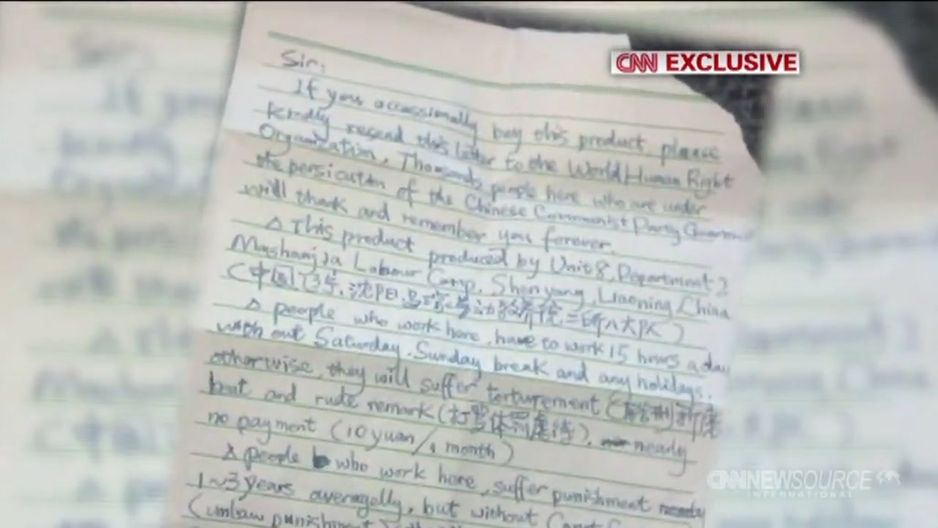 CNN EXCLUSIVE
Sir:
If you occassionally buy this product, please
kindly resend this letter to the World Human Right
Organization. Thousands people here who are under
the persicution of the Chinese Communist Party Goverment
will thank and remember you forever.
△ This product produced by Unit 8, Department 2
Mashanjia Labour Camp, Shenyang, Liaoning, China
(中国 辽宁, 沈阳 马三家劳动教养院二所八大队)
△ people who work here, have to work 15 hours a day
with out Saturday, Sunday break and any holidays,
otherwise, they will suffer torturement (
but and rude remark (打骂体罚虐待), nearly
no payment (10 yuan/1 month)
△ people who work here, suffer punishment nearly
1~3 years averagelly, but without Court
(unlaw punishment)
CNN NEWSOURCE
INTERNATIONAL